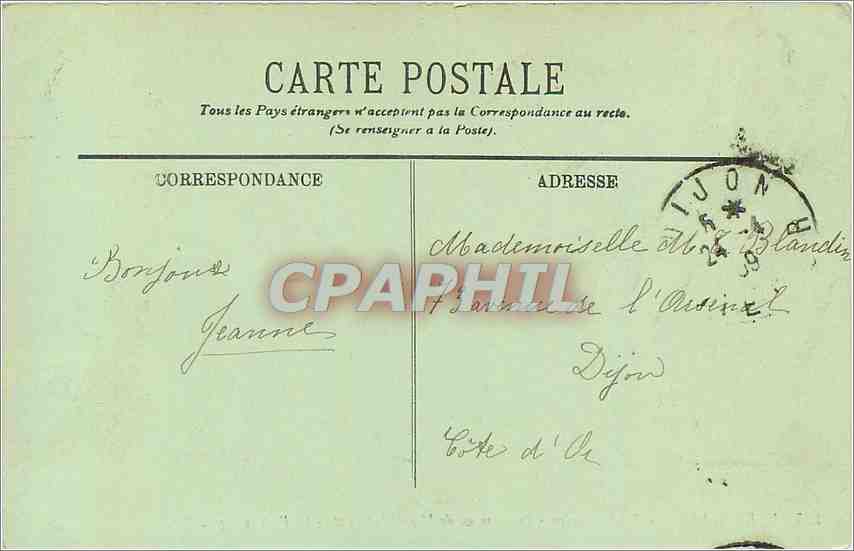 CARTE POSTALE
Tous les Pays étrangers n'acceptent pas la Correspondance au recto.
(Se renseigner a la Poste).
CORRESPONDANCE
ADRESSE
IJON
24 -4
09
Bonjour
Jeanne
Mademoiselle M. Blandin
73 avenue de l'Arsenal
Dijon
Côte d'Or
CPAPHIL